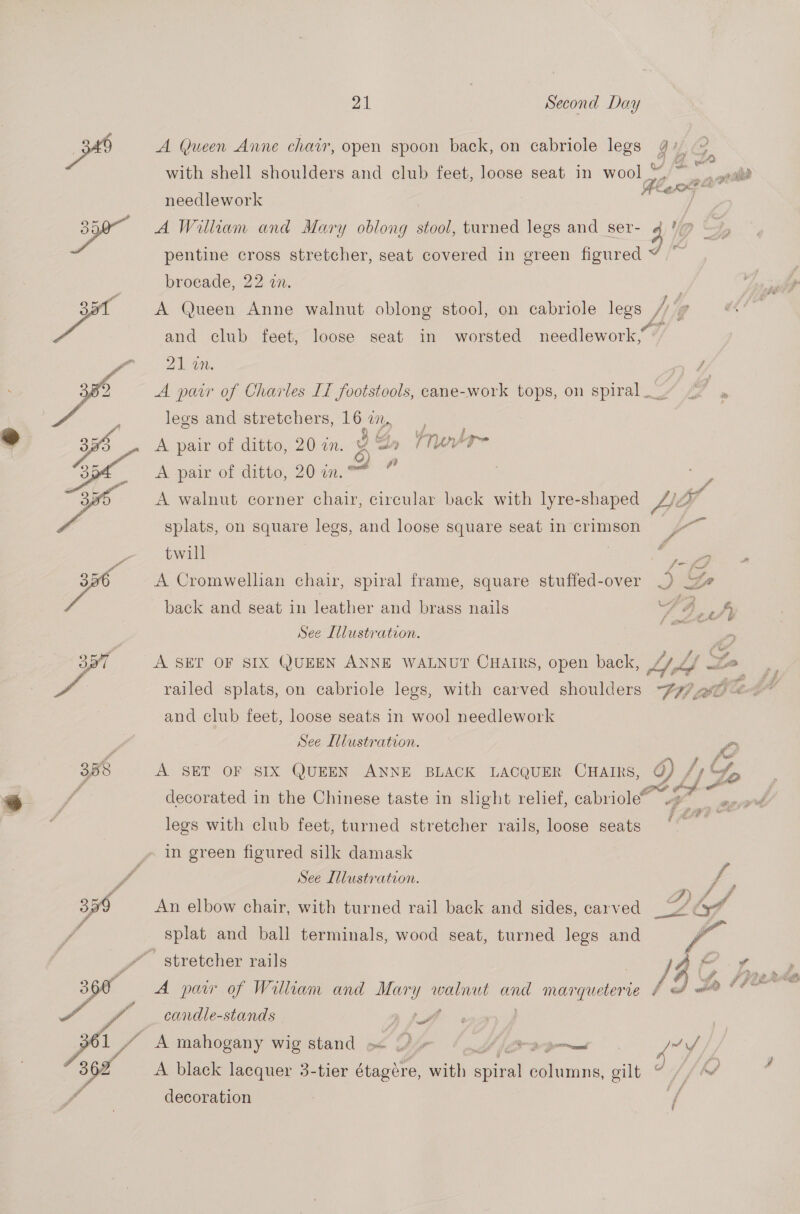 21 Second Day
349 A Queen Anne chair, open spoon back, on cabriole legs
with shell shoulders and club feet, loose seat in wool
needlework
350 A William and Mary oblong stool, turned legs and ser-
pentine cross stretcher, seat covered in green figured
brocade, 22 in.
351 A Queen Anne walnut oblong stool, on cabriole legs
and club feet, loose seat in worsted needlework,
21 in.
352 A pair of Charles II footstools, cane-work tops, on spiral
legs and stretchers, 16 in.
353 A pair of ditto, 20 in.
354 A pair of ditto, 20 in.
355 A walnut corner chair, circular back with lyre-shaped
splats, on square legs, and loose square seat in crimson
twill
356 A Cromwellian chair, spiral frame, square stuffed-over
back and seat in leather and brass nails
See Illustration.
357 A SET OF SIX QUEEN ANNE WALNUT CHAIRS, open back,
railed splats, on cabriole legs, with carved shoulders
and club feet, loose seats in wool needlework
See Illustration.
358 A SET OF SIX QUEEN ANNE BLACK LACQUER CHAIRS,
decorated in the Chinese taste in slight relief, cabriole
legs with club feet, turned stretcher rails, loose seats
in green figured silk damask
See Illustration.
359 An elbow chair, with turned rail back and sides, carved
splat and ball terminals, wood seat, turned legs and
stretcher rails
360 A pair of William and Mary walnut and marqueterie
candle-stands
361 A mahogany wig stand
362 A black lacquer 3-tier étagère, with spiral columns, gilt
decoration